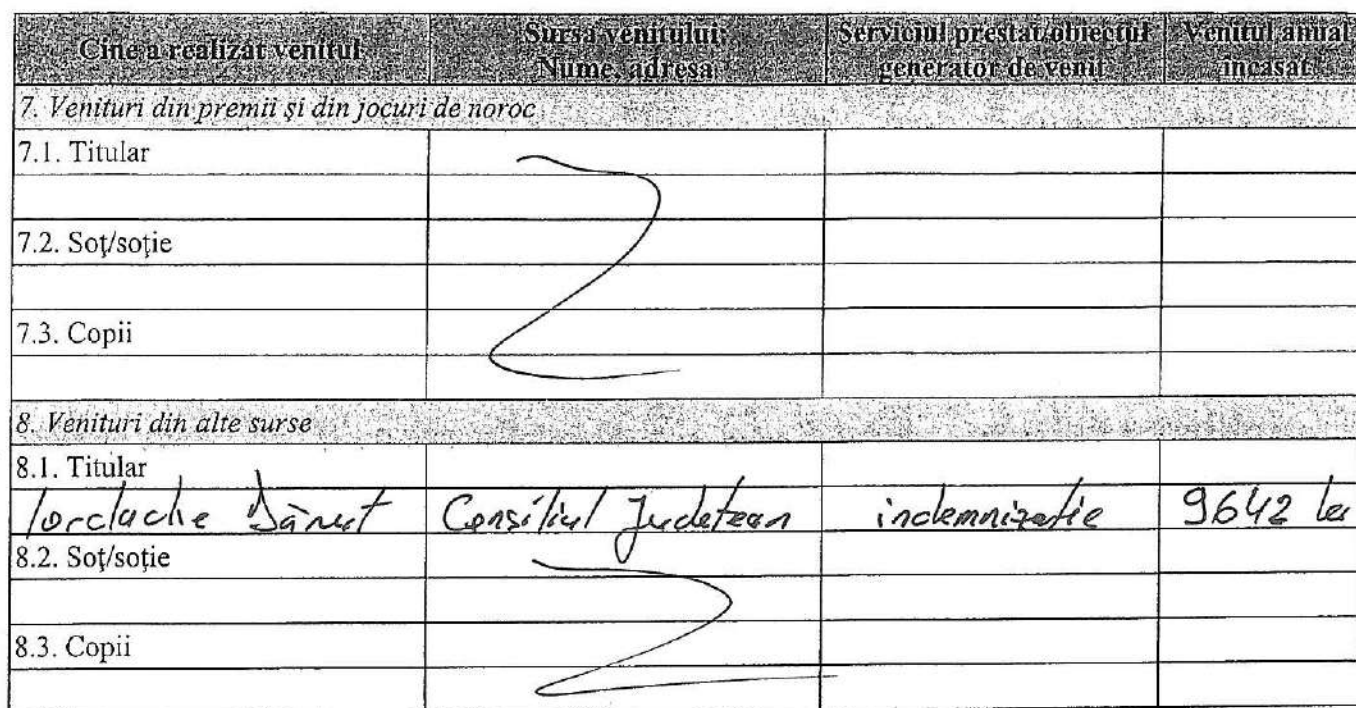 Cine a realizat venitul
Sursa venitului:
Nume, adresa
Serviciul prestat/obiectul
generator de venit
Venitul anual
încasat
7. Venituri din premii şi din jocuri de noroc
7.1. Titular
7.2. Soţ/soţie
7.3. Copii
8. Venituri din alte surse
8.1. Titular
Iordache Dănuț Consiliul Județean indemnizatie 9642 lei
8.2. Soţ/soţie
8.3. Copii